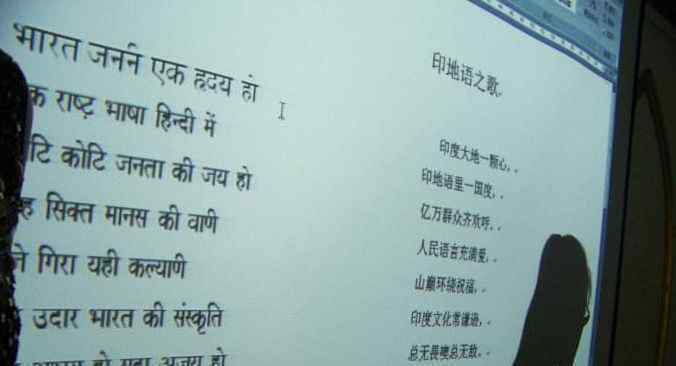 भारत जनन एक हृदय हो
राष्ट भाषा हिन्दी में
टि कोटि जनता की जय हो
सिक्त मानस की वाणी
गिरा यही कल्याणी
उदार भारत की संस्कृति
हो सदा अजय हो
印地语之歌,
印度大地一颗心,
印地语里一国度,
亿万群众齐欢呼,
人民语言充满爱,
山巅环绕祝福,
印度文化常谦逊,
总无畏噢总无敌,